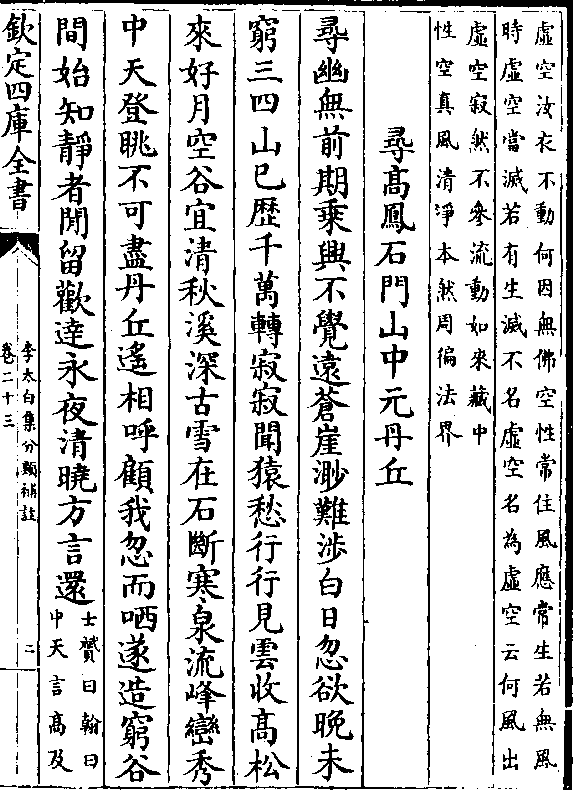 虚空汝衣不動何因無佛空性常住風應常生若無風
時虚空當滅若有生滅不名虚空名為虚空云何風出
虚空寂然不參流動如來藏中
性空真風清淨本然周徧法界
尋高鳳石門山中元丹丘
尋幽無前期乗興不覺遠蒼崖渺難涉白日忽欲晚未
窮三四山已歴千萬轉寂寂聞猿愁行行見雲收高松
來好月空谷宜清秋溪深古雪在石斷寒泉流峰巒秀
中天登眺不可盡丹丘遙相呼顧我忽而哂遂造窮谷
間始知靜者閒留歡達永夜清曉方言還
士贇曰翰曰
中天言高及
欽定四庫全書
李太白集分類補註
卷二十三
二